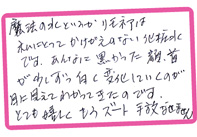 魔法の水というか リモネアは
私にとって かけがえのない 化粧水
です。あんなに 黒かった 顔、首
が 少しずつ 白く 変化していくのが
目に見えて わかってきたのです。
とても 嬉しく もう ズート 手放せません